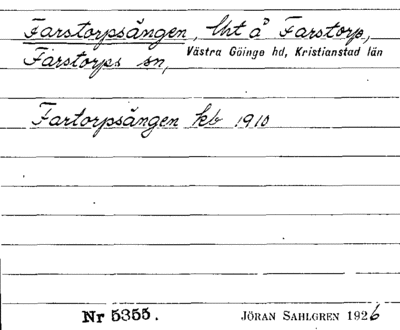 Farstorpsängen, lht å Farstorp,
Farstorps sn, Västra Göinge hd, Kristianstad län
Fartorpsängen kb 1910
Nr 5355. JÖRAN SAHLGREN 1926